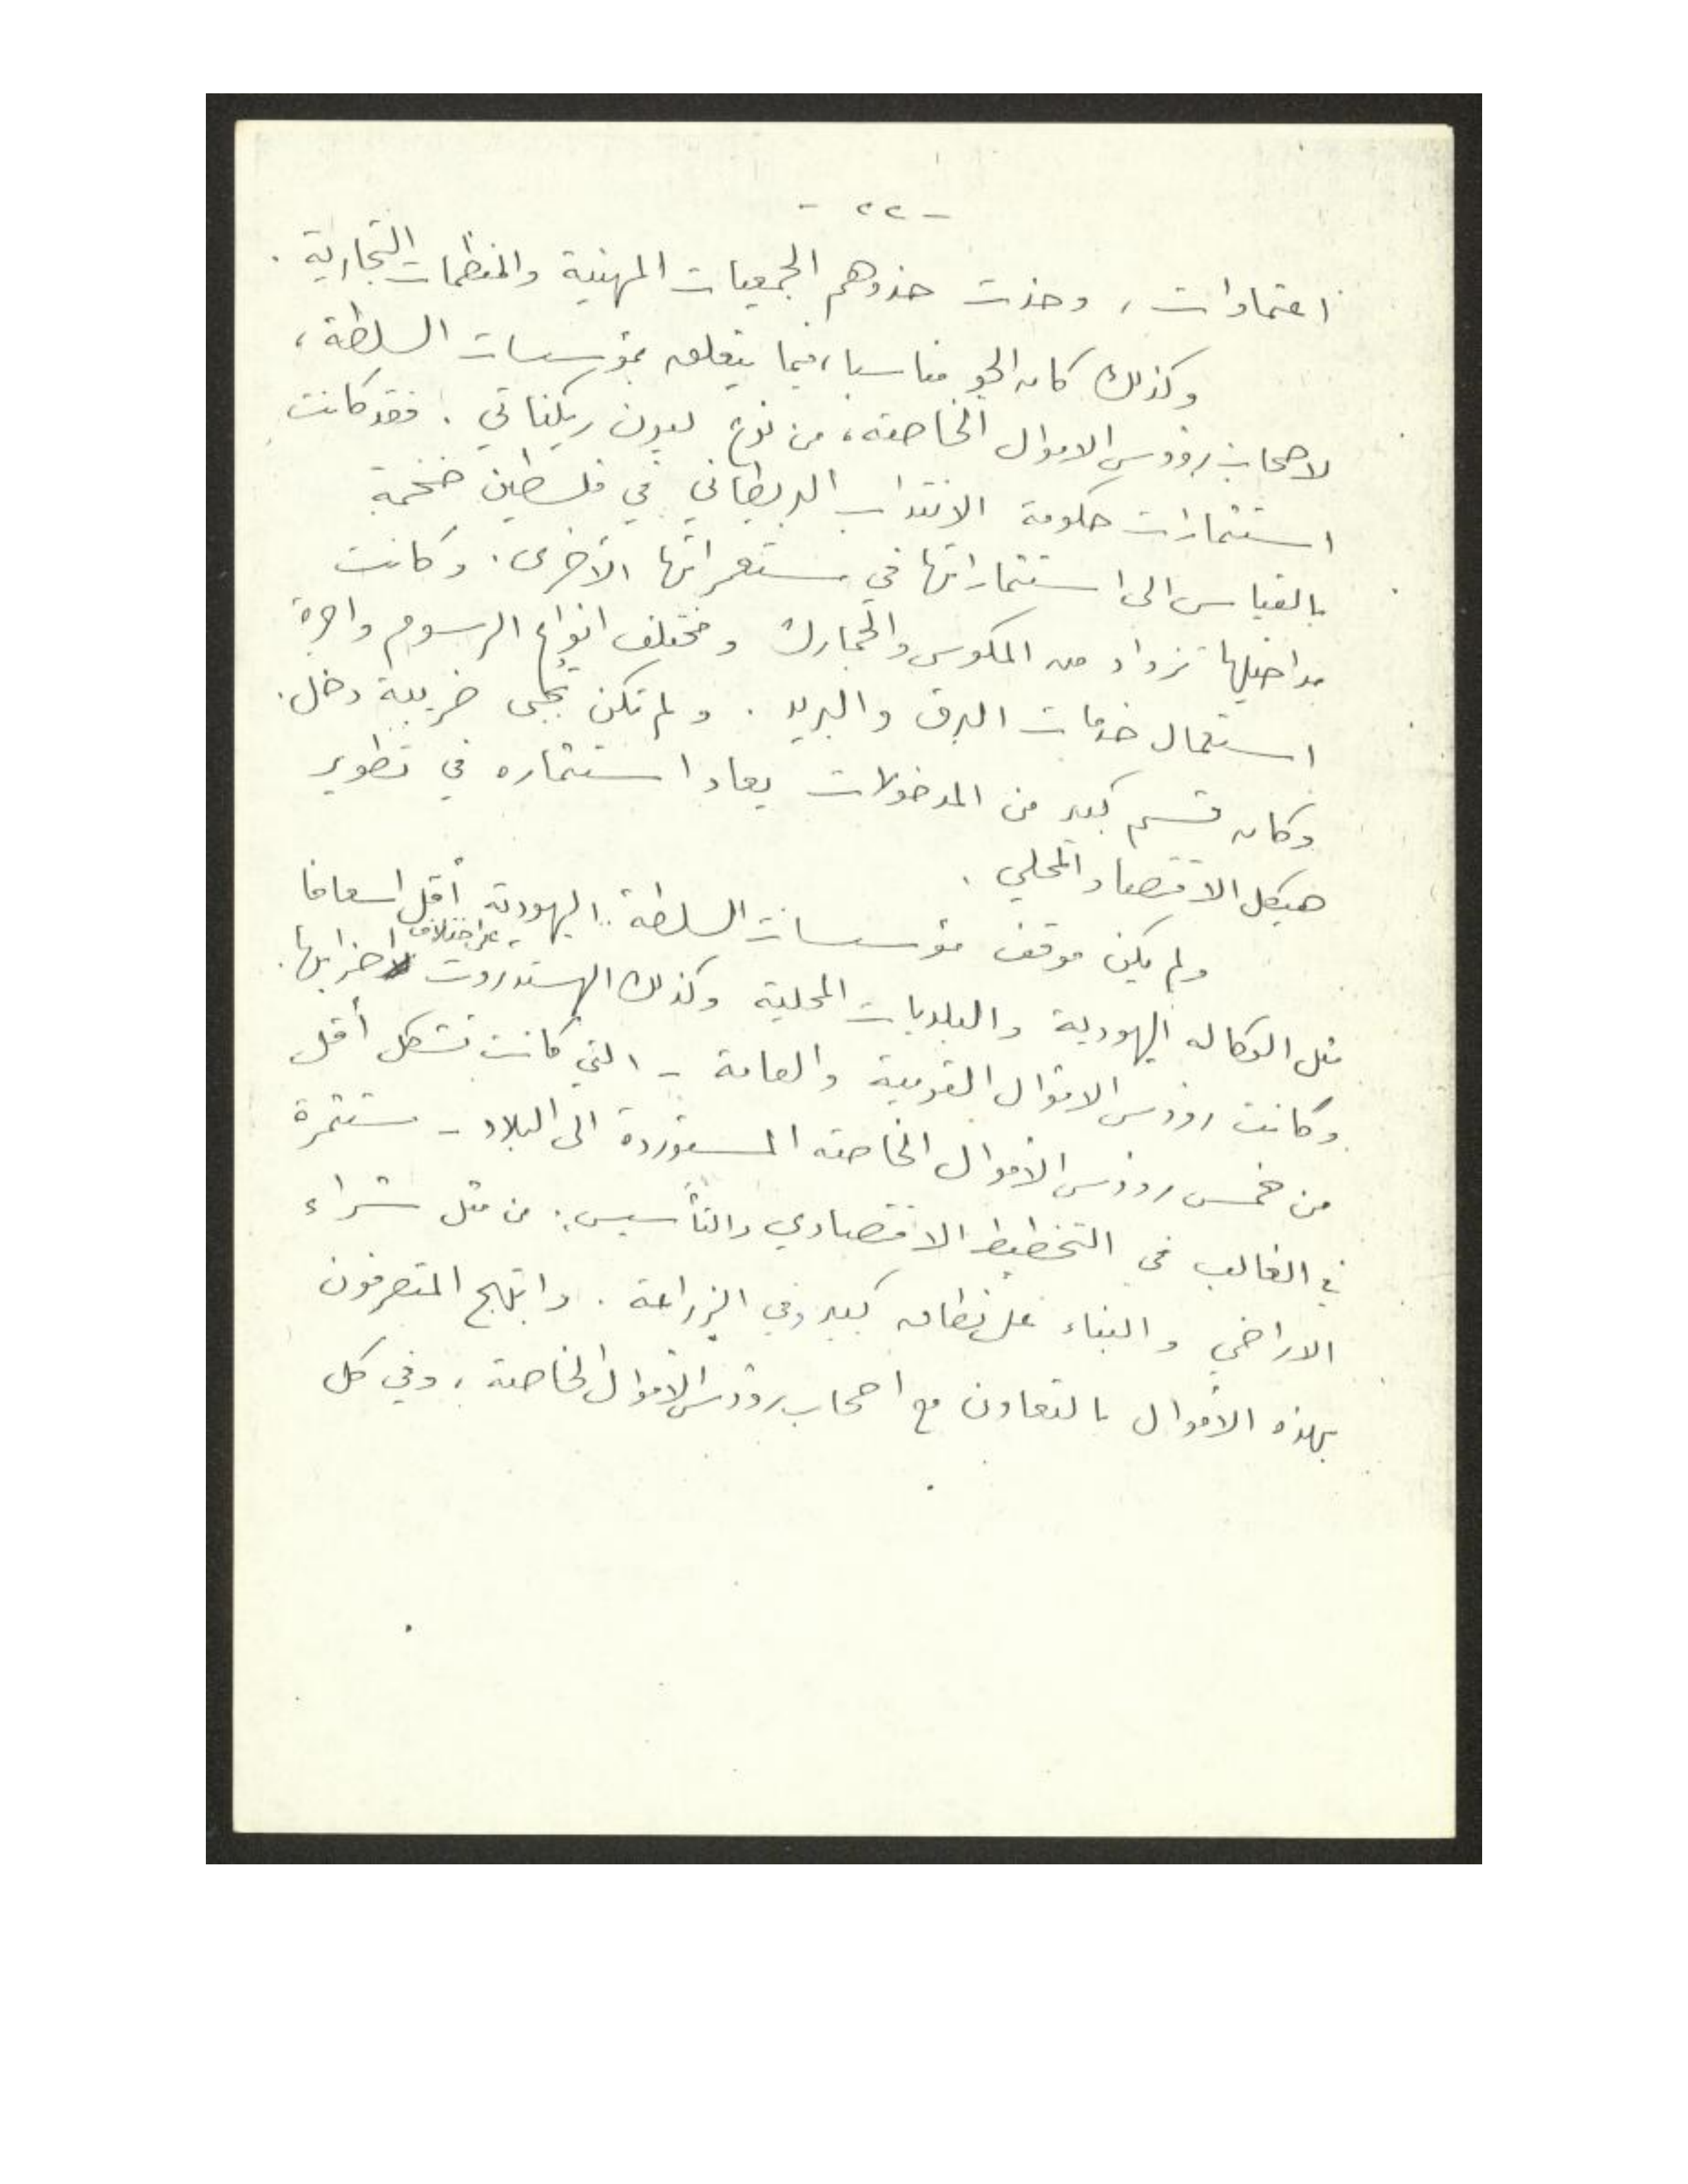 - ٢٢ -
اعتمادات، وحذت حذوهم الجمعيات المهنية والمنظمات التجارية.
وكذلك كان الجو مناسبا، فيما يتعلق بمؤسسات السلطة،
لاصحاب رؤوس الاموال الخاصة، من نوع ليون ريكناتي. فقد كانت
استثمارات حكومة الانتداب البريطاني في فلسطين ضخمة
بالقياس الى استثماراتها في مستعمراتها الأخرى. وكانت
مداخيلها تزداد من المكوس والجمارك ومختلف انواع الرسوم واجرة
استعمال خدمات البرق والبريد. ولم تكن تُجبى ضريبة دخل.
وكان قسم كبير من المدخولات يعاد استثماره في تطوير
هيكل الاقتصاد المحلي.
ولم يكن موقف مؤسسات السلطة اليهودية أقل اسعافا
مثل الوكاله اليهودية والبلديات المحلية وكذلك الهستدروت على اختلاف احزابها.
وكانت رؤوس الاموال القومية والعامة - التي كانت تشكل أقل
من خمس رؤوس الأموال الخاصة المستوردة الى البلاد - مستثمرة
في الغالب في التخطيط الاقتصادي والتأسيس: من مثل شراء
الاراضي والبناء على نطاق كبير وفي الزراعة. وابتهج المتصرفون
بهذه الأموال بالتعاون مع اصحاب رؤوس الأموال الخاصة، وفي كل